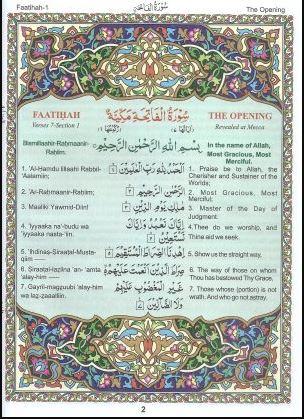 Faatihah-1
سُورَةُ الْفَاتِحَةِ
The Opening
FAATIḤAH
Verses 7-Section 1
سُوْرَةُ الْفَاتِحَةِ مَكِّيَّةٌ
THE OPENING
Revealed at Mecca
Bismillaahir-Raḥmaanir-
Raḥiim.
بِسْمِ اللهِ الرَّحْمٰنِ الرَّحِيْمِ
In the name of Allah,
Most Gracious, Most
Merciful.
1. 'Al-Hamdu lillaahi Rabbil-
'Aalamiin;
اَلْحَمْدُ لِلّٰهِ رَبِّ الْعٰلَمِيْنَ
1. Praise be to Allah, the
Cherisher and Sustainer of the
Worlds;
2. 'Ar-Raḥmaanir-Raḥiim;
الرَّحْمٰنِ الرَّحِيْمِ
2. Most Gracious, Most
Merciful.
3. Maaliki Yawmid-Diin!
مٰلِكِ يَوْمِ الدِّيْنِ
3. Master of the Day of
Judgment.
4. 'Iyyaaka na'-budu wa
'Iyyaaka nasta-'iin.
اِيَّاكَ نَعْبُدُ وَاِيَّاكَ
نَسْتَعِيْنُ
4.Thee do we worship, and
Thine aid we seek.
5. 'Ihdinas-Siraaṭal-Musta-
qiim
اِهْدِنَا الصِّرَاطَ الْمُسْتَقِيْمَ
5. Show us the straight way,
6. Siraaṭal-laziina 'an-'amta
'alay-him
صِرَاطَ الَّذِيْنَ اَنْعَمْتَ عَلَيْهِمْ
6. The way of those on whom
Thou has bestowed Thy Grace,
7. Gayril-magẓuubi 'alay-him
wa laẓ-ẓaaalliin.
غَيْرِ الْمَغْضُوْبِ عَلَيْهِمْ
وَلَا الضَّآلِّيْنَ
7. Those whose (portion) is not
wrath. And who go not astray.
2